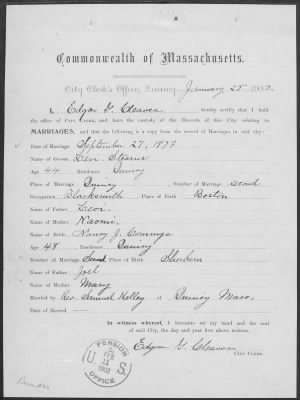 Commonwealth of Massachusetts.
City Clerk's Office, Quincy January 25 1902
I, Edgar G. Cleaves hereby certify that I hold
the office of CITY CLERK, and have the custody of the Records of this City relating to
MARRIAGES, and that the following is a copy from the record of Marriages in said city:
Date of Marriage September 27, 1873
Name of Groom Levi Stearns
Age 44 Residence Quincy
Place of Marriage Quincy Number of Marriage second
Occupation Blacksmith Place of Birth Boston
Name of Father Levi
Name of Mother Naomi
Name of Bride Nancy J. Comings
Age 48 Residence Quincy
Number of Marriage Second Place of Birth Sherborn
Name of Father Joel
Name of Mother Mary
Married by Rev. Samuel Kelley at Quincy Mass.
Date of Record
In witness whereof, I hereunto set my hand and the seal
of said City, the day and year first above written.
Edgar G. Cleaves
CITY CLERK.
PENSION
U. S.
FEB
1902
OFFICE